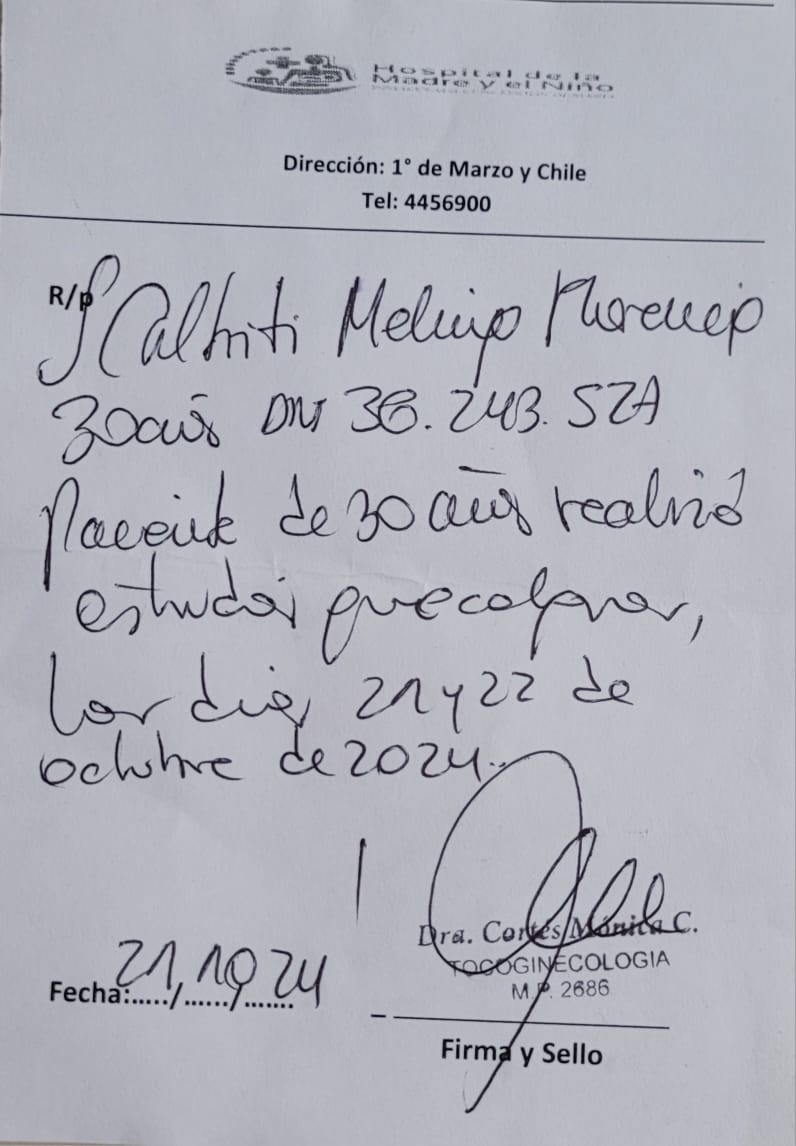 Hospital de la
Madre y el Niño
Dirección: 1° de Marzo y Chile
Tel: 4456900
R/p
30 años DNI 38.243.521
Paciente de 30 años realizó
estudios
los días 21 y 22 de
octubre de 2024.
Dra. Cortés Mónica C.
TOCOGINECOLOGIA
M.P. 2686
Fecha: 21/10/24
Firma y Sello